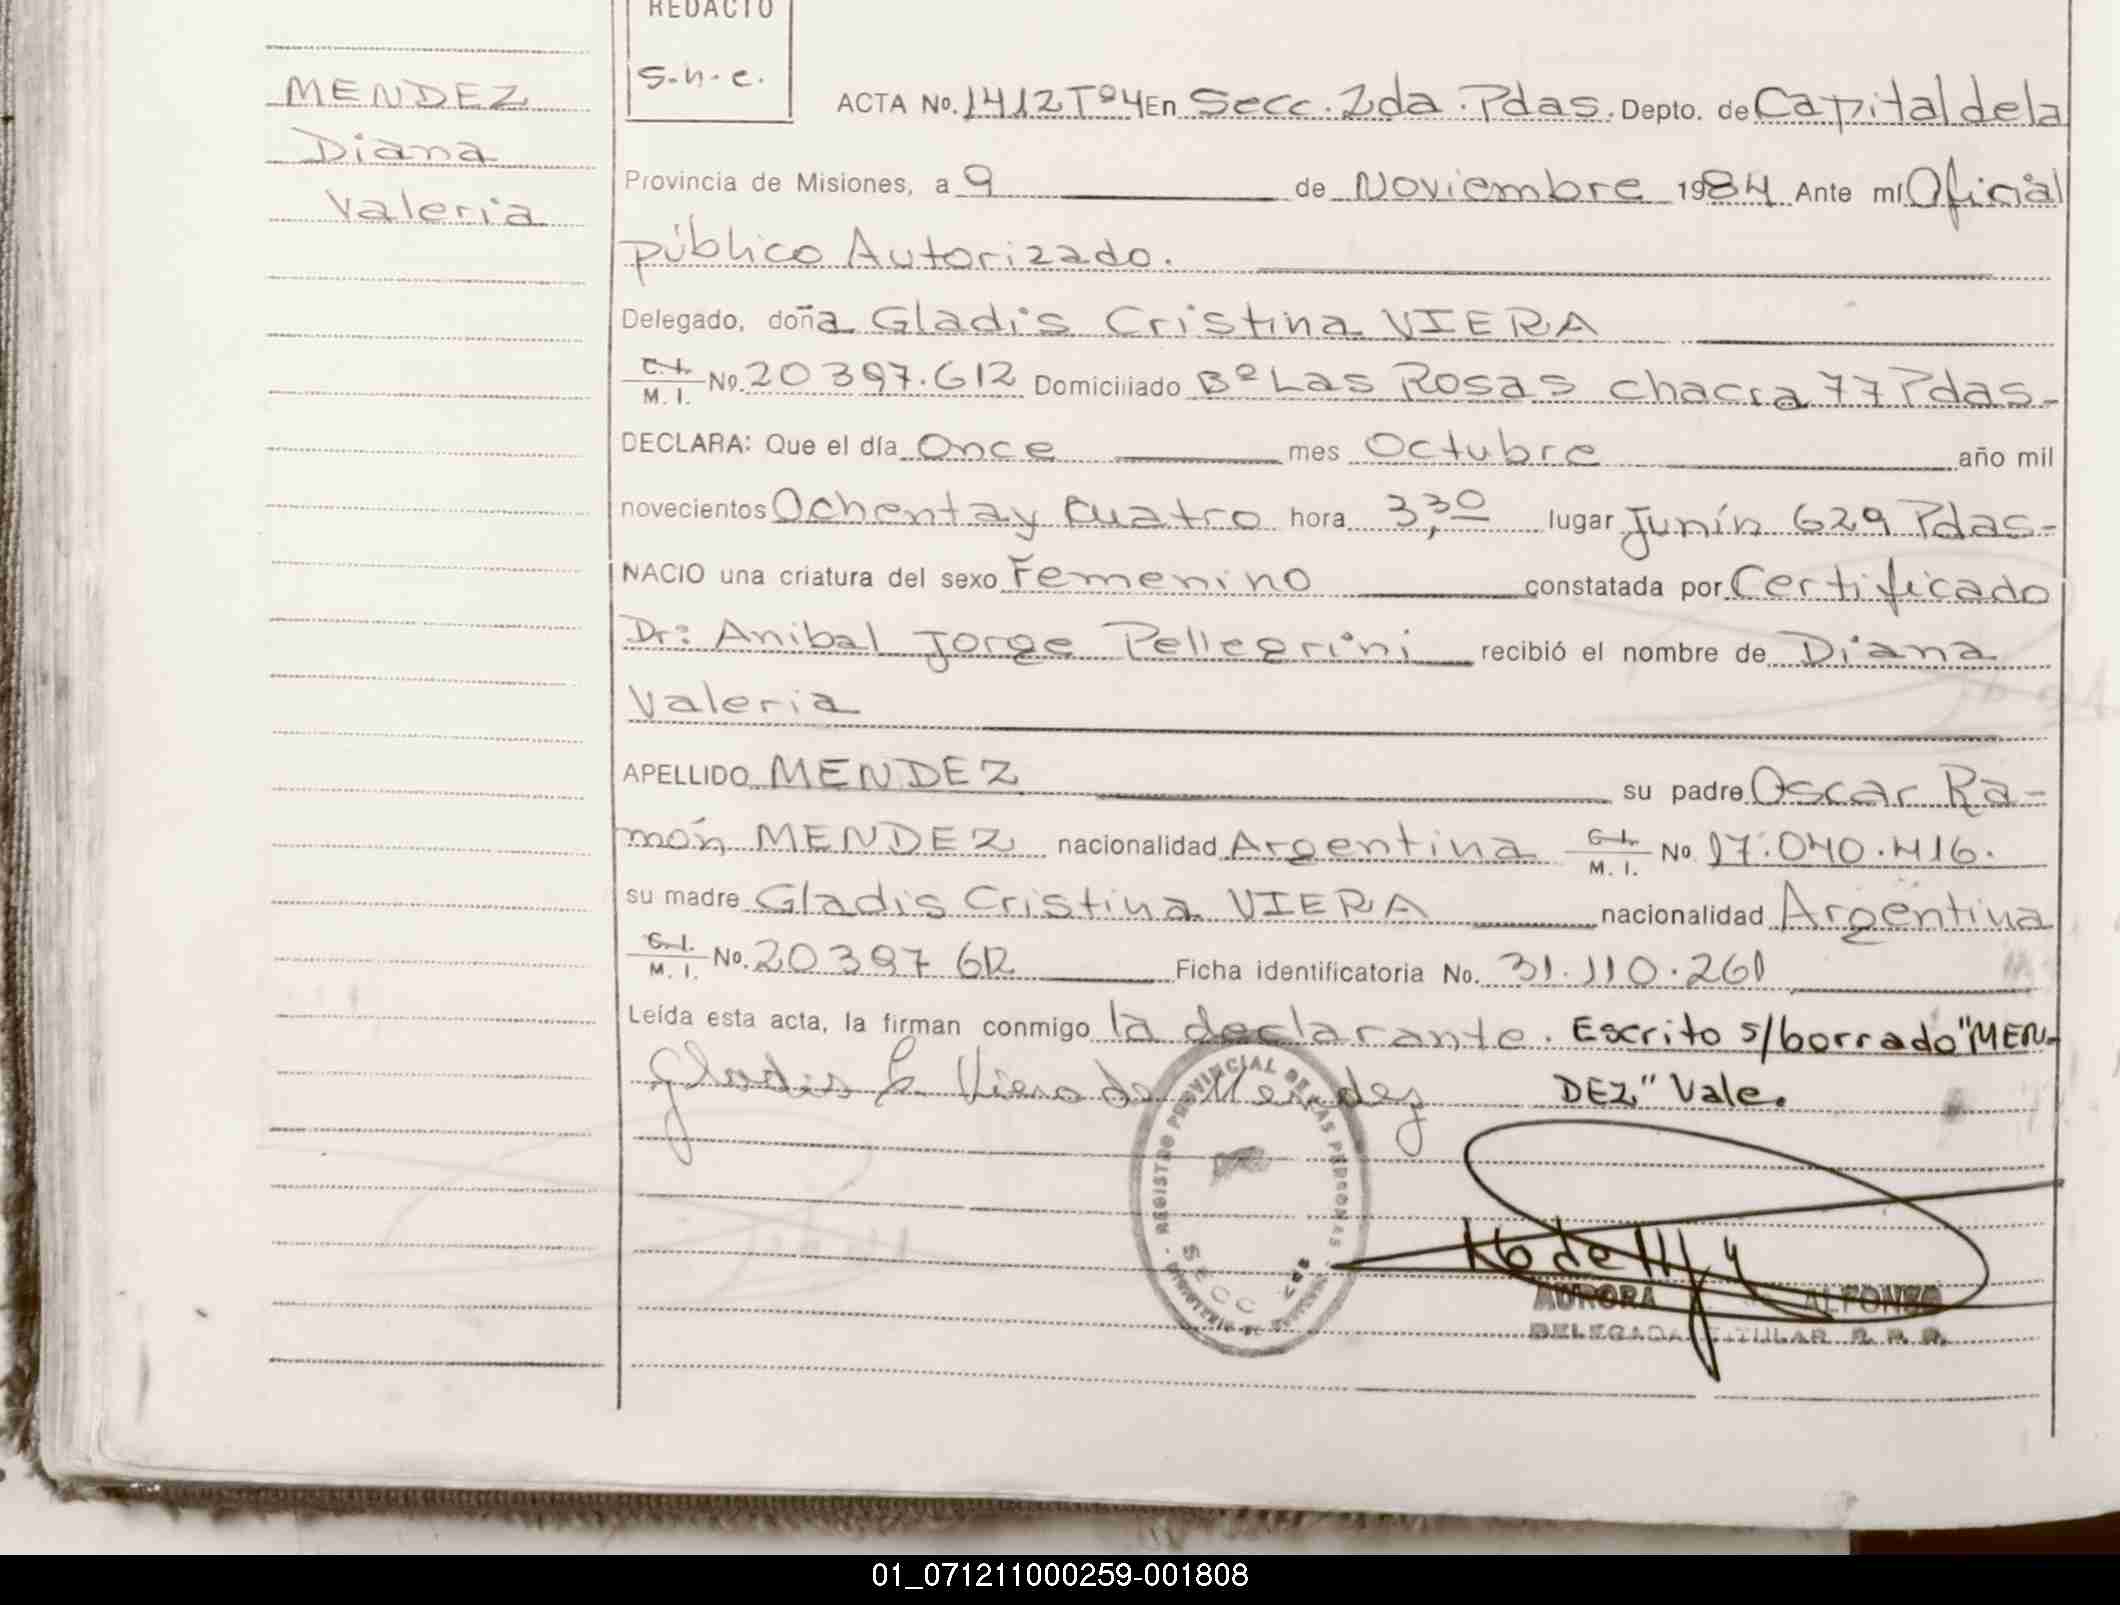 REDACTO
s.h.c.
MENDEZ
Diana
Valeria
ACTA No. 1412 Tº4 En Secc. 2da. Pdas. Depto. de Capital de la
Provincia de Misiones, a 9 de Noviembre 1984 Ante mí Oficial
público Autorizado.
Delegado, doña Gladis Cristina VIERA
C. I. M. I. No. 20 397.612 Domiciliado Bº Las Rosas chacra 77 Pdas-
DECLARA: Que el día Once mes Octubre año mil
novecientos Ochenta y cuatro hora 3,30 lugar Junín 629 Pdas-
NACIO una criatura del sexo Femenino constatada por Certificado
Dr: Anibal Jorge Pellegrini recibió el nombre de Diana
Valeria
APELLIDO MENDEZ su padre Oscar Ra-
món MENDEZ nacionalidad Argentina C. I. M. I. No. 17.040.416.
su madre Gladis Cristina VIERA nacionalidad Argentina
C. I. M. I. No. 20 397 612 Ficha identificatoria No. 31.110.261
Leída esta acta, la firman conmigo la declarante. Escrito s/borrado "MEN-
DEZ" Vale.
Gladis C. Viera de Mendez
REGISTRO PROVINCIAL DE LAS PERSONAS
SECC 2da
AURORA ALFONSO
DELEGADA TITULAR R. P. P.
01_071211000259-001808